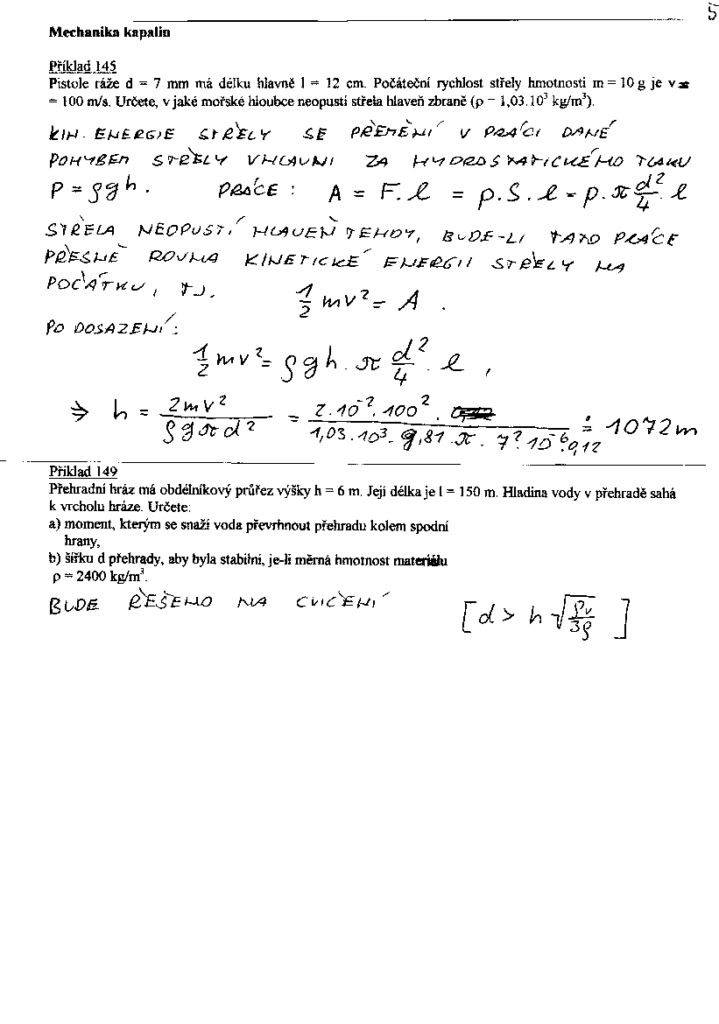 5
Mechanika kapalin
Příklad 145
Pistole ráže d = 7 mm má délku hlavně l = 12 cm. Počáteční rychlost střely hmotnosti m = 10 g je v =
= 100 m/s. Určete, v jaké mořské hloubce neopustí střela hlaveň zbraně (ρ = 1,03.10³ kg/m³).
KIN. ENERGIE STŘELY SE PŘEMĚNÍ V PRÁCI DANÉ
POHYBEM STŘELY V HLAVNI ZA HYDROSTATICKÉHO TLAKU
P = ρgh. PRÁCE : A = F.l = p.S.l = p.π d²/4 . l
STŘELA NEOPUSTÍ HLAVEŇ TEHDY, BUDE-LI TATO PRÁCE
PŘESNĚ ROVNA KINETICKÉ ENERGII STŘELY NA
POČÁTKU, TJ. 1/2 mv² = A .
PO DOSAZENÍ:
1/2 mv² = ρgh.π d²/4 . l ,
⇒ h = 2mv² / ρgπd² = 2.10⁻².100² . / 1,03.10³.9,81.π.7².10⁻⁶.0,12 ≐ 1072 m
Příklad 149
Přehradní hráz má obdélníkový průřez výšky h = 6 m. Její délka je l = 150 m. Hladina vody v přehradě sahá
k vrcholu hráze. Určete:
a) moment, kterým se snaží voda převrhnout přehradu kolem spodní
hrany,
b) šířku d přehrady, aby byla stabilní, je-li měrná hmotnost materiálu
ρ = 2400 kg/m³.
BUDE ŘEŠENO NA CVIČENÍ [d > h √(ρv/3ρ) ]